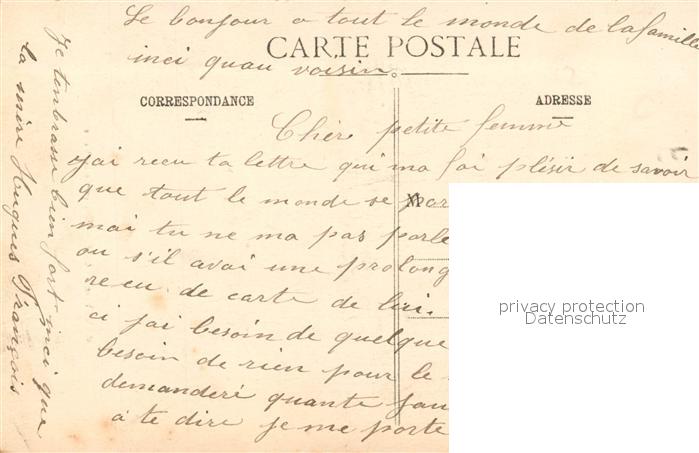 Le bonjour a tout le monde de la famille
inci quau voisin.
CARTE POSTALE
CORRESPONDANCE
ADRESSE
Chèr petite femme
jai recu ta lettre qui ma fai plésir de savoir
que tout le monde se por
M
mai tu ne ma pas parle
ou s'il avai une prolong
recu de carte de
ci jai besoin de quelque
besoin de rien pour le
demanderé quante
a te dire je me porte
je tembrasse bien fort inci que
la mère Hugues François
privacy protection
Datenschutz